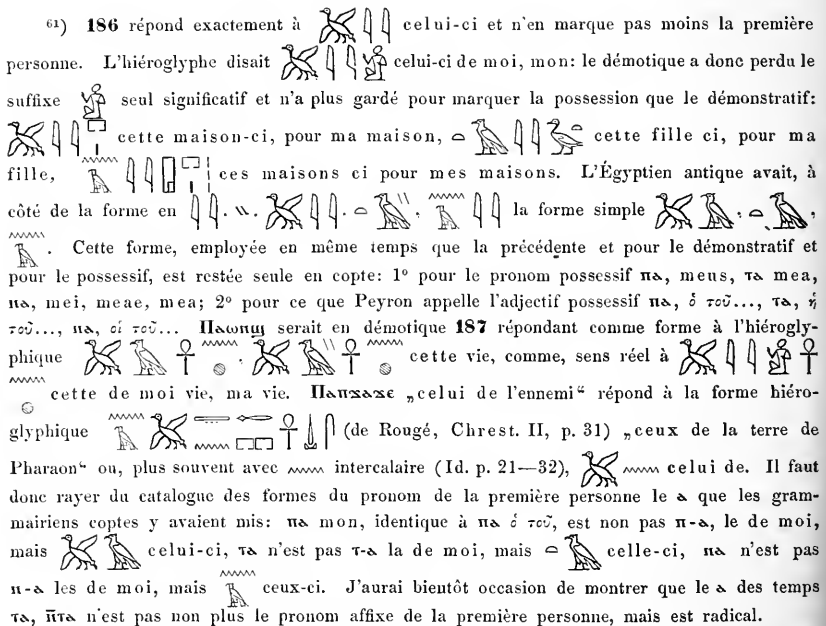 ⁶¹) 186 répond exactement à 𓅮𓇋𓇋 celui-ci et n'en marque pas moins la première
personne. L'hiéroglyphe disait 𓅮𓇋𓇋𓀀 celui-ci de moi, mon: le démotique a donc perdu le
suffixe 𓀀 seul significatif et n'a plus gardé pour marquer la possession que le démonstratif:
𓅮𓇋𓇋𓉐𓏤 cette maison-ci, pour ma maison, 𓏏𓄿𓇋𓇋𓅭𓏏 cette fille ci, pour ma
fille, 𓈖𓄿𓇋𓇋𓉐 ces maisons ci pour mes maisons. L'Égyptien antique avait, à
côté de la forme en 𓇋𓇋. 𓏭. 𓅮𓇋𓇋. 𓏏𓄿𓏭, 𓈖𓄿𓇋𓇋 la forme simple 𓅮𓄿, 𓏏𓄿,
𓈖𓄿. Cette forme, employée en même temps que la précédente et pour le démonstratif et
pour le possessif, est restée seule en copte: 1° pour le pronom possessif ⲡⲁ, meus, ⲧⲁ mea,
ⲛⲁ, mei, meae, mea; 2° pour ce que Peyron appelle l'adjectif possessif ⲡⲁ, ὁ τοῦ..., ⲧⲁ, ἡ
τοῦ..., ⲛⲁ, οἱ τοῦ... Ⲡⲁⲱⲛϣ serait en démotique 187 répondant comme forme à l'hiérogly-
phique 𓅮𓄿𓋹𓈖𓐍, 𓅮𓄿𓏭𓋹𓈖𓐍 cette vie, comme, sens réel à 𓅮𓇋𓇋𓀀𓋹
𓈖𓐍 cette de moi vie, ma vie. Ⲡⲁⲡϫⲁϫⲉ „celui de l'ennemi“ répond à la forme hiéro-
glyphique 𓈖𓄿𓅮 (de Rougé, Chrest. II, p. 31) „ceux de la terre de
Pharaon“ ou, plus souvent avec 𓈖 intercalaire (Id. p. 21—32), 𓅮𓈖 celui de. Il faut
donc rayer du catalogue des formes du pronom de la première personne le ⲁ que les gram-
mairiens coptes y avaient mis: ⲡⲁ mon, identique à ⲡⲁ ὁ τοῦ, est non pas ⲡ-ⲁ, le de moi,
mais 𓅮𓄿 celui-ci, ⲧⲁ n'est pas ⲧ-ⲁ la de moi, mais 𓏏𓄿 celle-ci, ⲛⲁ n'est pas
ⲛ-ⲁ les de moi, mais 𓈖𓄿 ceux-ci. J'aurai bientôt occasion de montrer que le ⲁ des temps
ⲧⲁ, ⲛ̄ⲧⲁ n'est pas non plus le pronom affixe de la première personne, mais est radical.